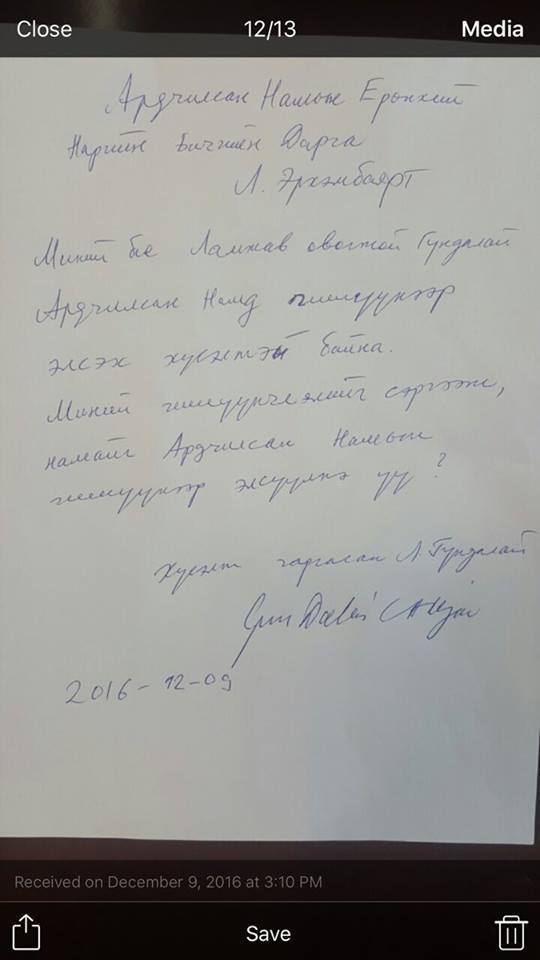 Close
12/13
Media
Ардчилсан Намын Ерөнхий
Нарийн Бичгийн Дарга
Л. Эрхэмбаярт
Миний бие Ламжав овогтой Гүндалай
Ардчилсан Намд гишүүнээр
элсэх хүсэлтэй байна.
Миний гишүүнчлэлийг сэргээж,
намайг Ардчилсан Намын
гишүүнээр элсүүлнэ үү?
Хүсэлт гаргасан Л. Гүндалай
2016-12-09
Received on December 9, 2016 at 3:10 PM
Save